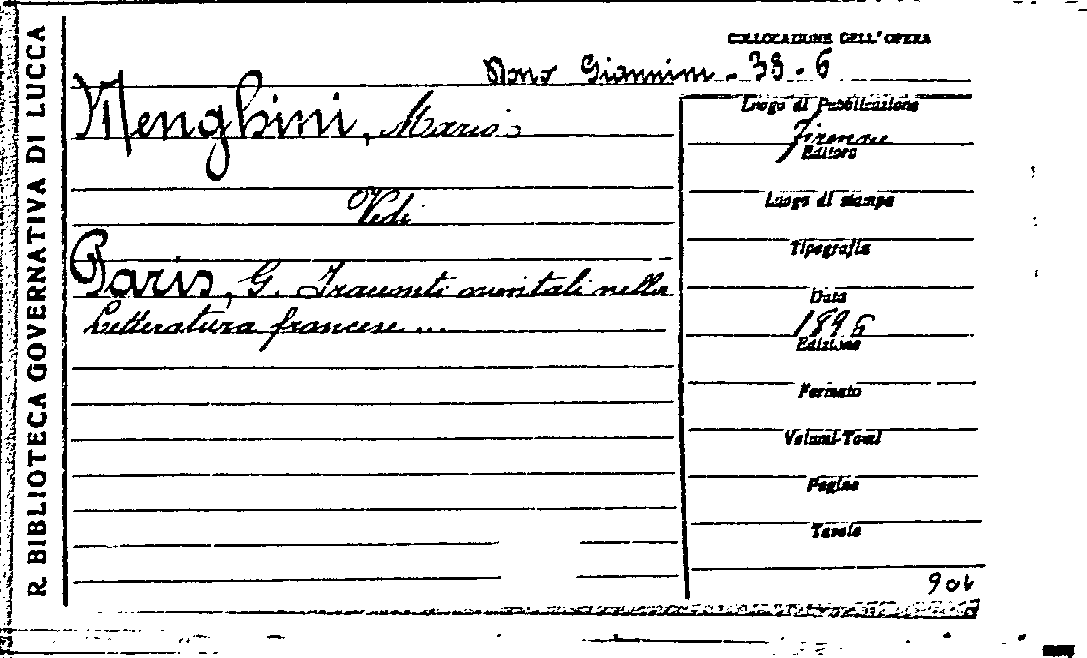 R. BIBLIOTECA GOVERNATIVA DI LUCCA
COLLOCAZIONE DELL'OPERA
Dono Giannini - 38 - 6
Menghini, Mario
Vedi
Paris, G. Iracconti orientali nella
letteratura francese ...
Luogo di Pubblicazione
Firenze
Editore
Luogo di stampa
Tipografia
Data
1895
Edizione
Formato
Volumi-Tomi
Pagine
Tavole